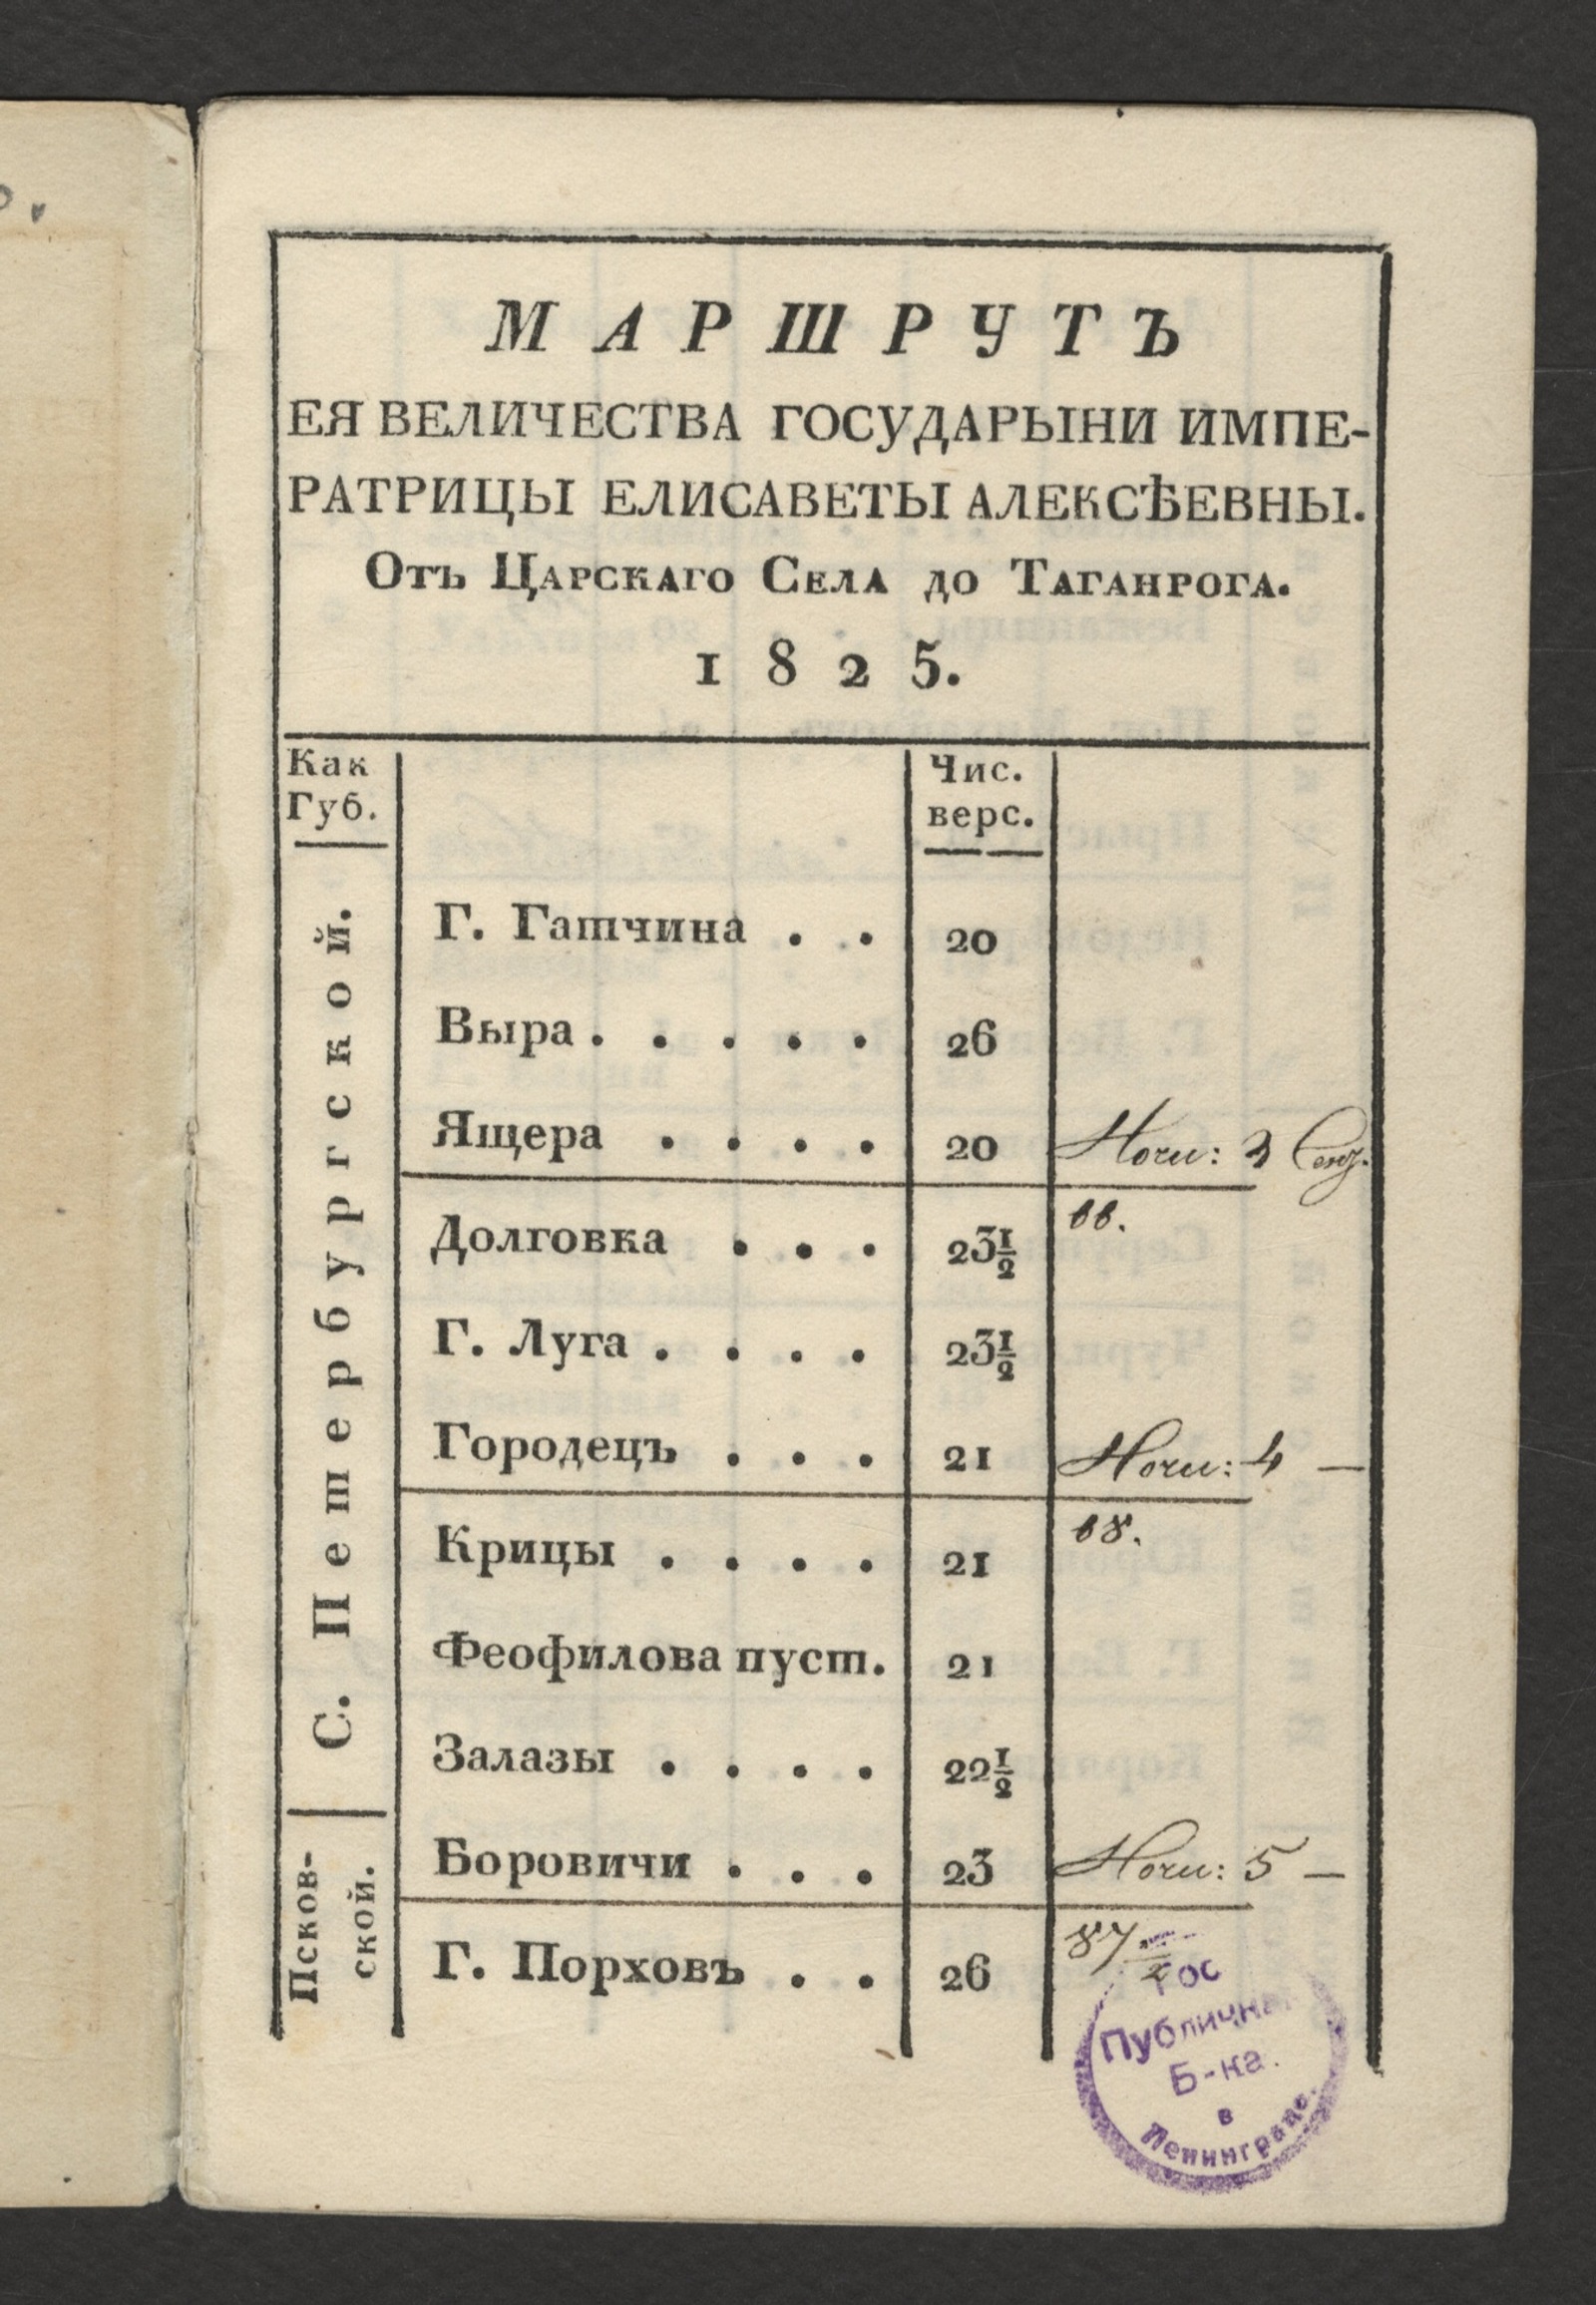 МАРШРУТЪ
ЕЯ ВЕЛИЧЕСТВА ГОСУДАРЫНИ ИМПЕ-
РАТРИЦЫ ЕЛИСАВЕТЫ АЛЕКСѢЕВНЫ.
Отъ Царскаго Села до Таганрога.
1825.
Как Губ.
Чис. верс.
С. Петербургской.
Г. Гатчина . . 20
Выра . . . . . 26
Ящера . . . . 20 Ночи: 3 Сент.
66.
Долговка . . . 23½
Г. Луга . . . . 23½
Городецъ . . . 21 Ночи: 4 —
68.
Крицы . . . . 21
Феофилова пуст. 21
Залазы . . . . 22½
Псков-
ской.
Боровичи . . . 23 Ночи: 5 —
87½
Г. Порховъ . . 26
Гос
Публичная
Б-ка.
в
Ленинграде.